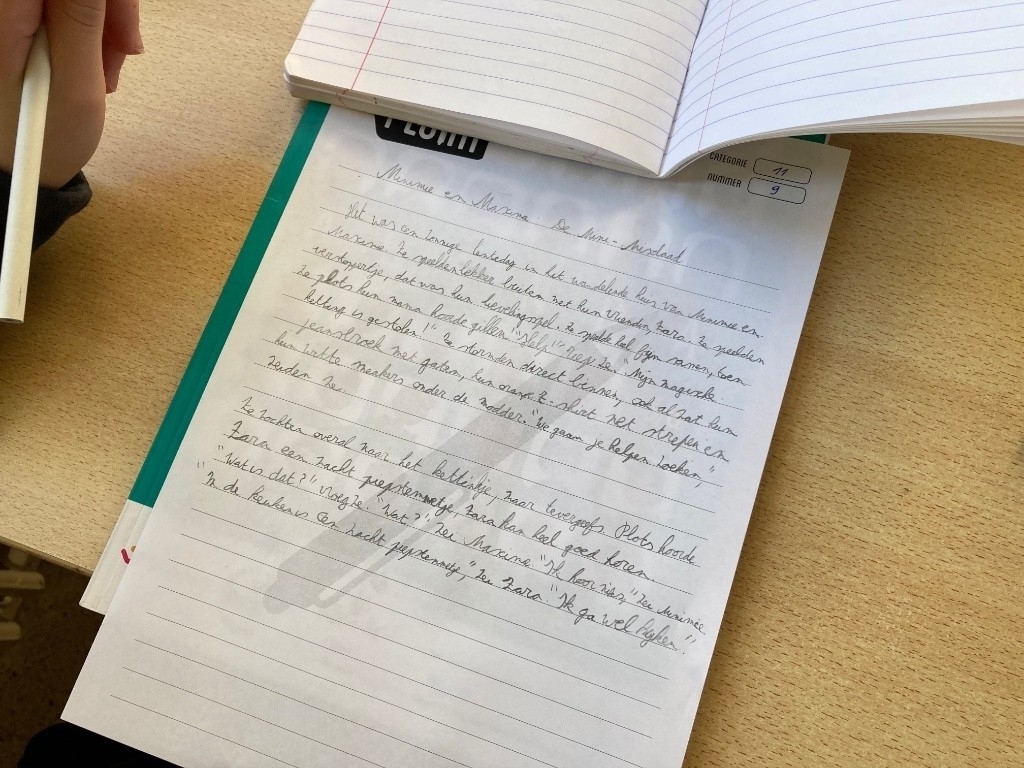 CATEGORIE 11
NUMMER 9
Minimie en Maxime De Mini-Misdaad
Het was een zonnige lentedag in het wandelende huis van Minimie en
Maxime. Ze speelden lekker buiten met hun vriendin, Zara. Ze speelden
verstoppertje, dat was hun lievelingsspel. Ze speelde hal fijn samen, toen
Ze plots hun mama hoorde gillen. "Help!" riep ze. "Mijn magische
ketting is gestolen!" Ze stormden direct binnen, ook al zat hun
jeansbroek met gaten, hun oranje T-shirt met strepen en
hun witte sneakers onder de modder. "We gaan je helpen zoeken,"
zeiden ze.
Ze zochten overal naar het kettinkje, maar tevergeefs. Plots hoorde
Zara een zacht piepstemmetje, Zara kan heel goed horen.
"Wat is dat?" vroeg ze. "Wat?" zei Maxime. "Ik hoor niks," zei Minimie.
"In de keuken is een zacht piepstemmetje," zei Zara. "Ik ga wel kijken."